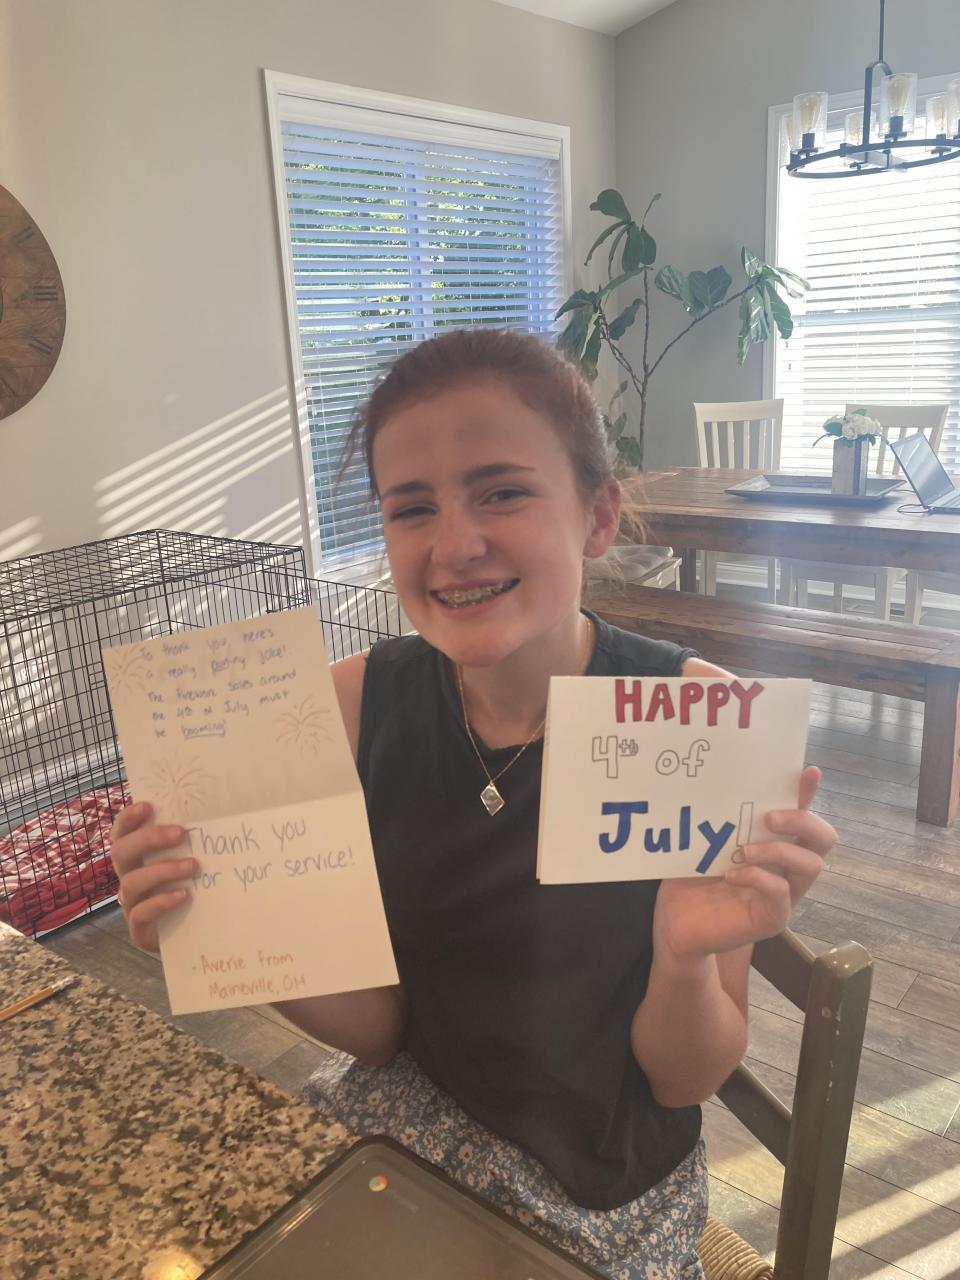 To thank you, here's
a really punny joke!:
The firework sales around
the 4th of July must
be booming!
Thank you
for your service!
- Averie from
Maineville, OH
HAPPY
4th of
July!